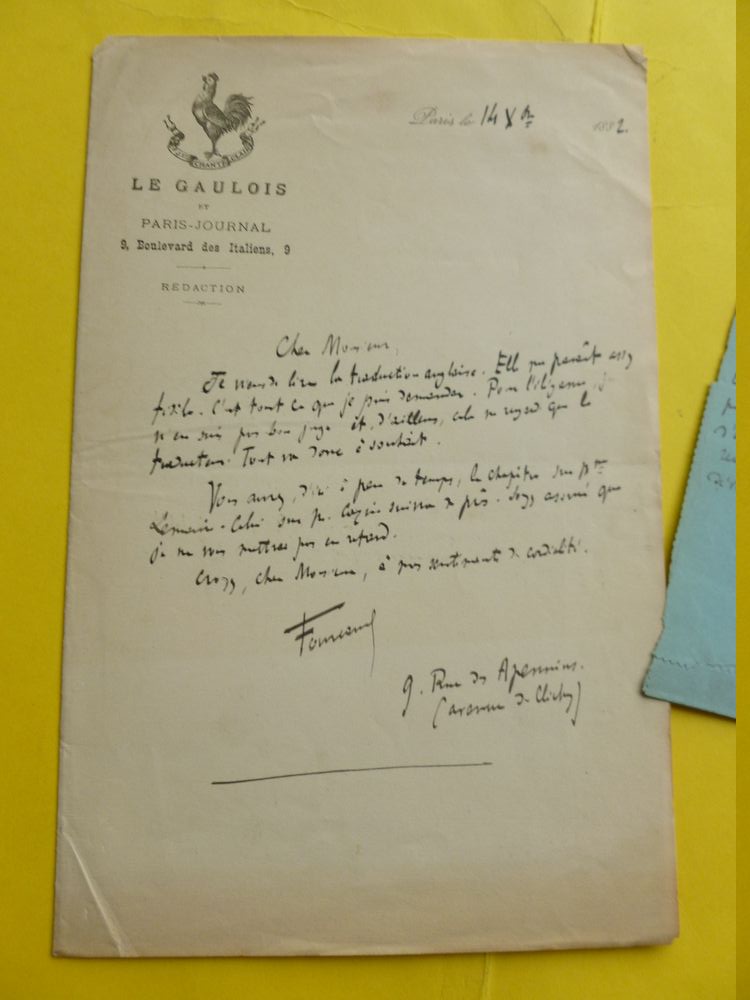 CHANTE CLAIR
LE GAULOIS
ET
PARIS-JOURNAL
9, Boulevard des Italiens, 9
RÉDACTION
Paris le 14 Xbre 1882.
Cher Monsieur,
Je viens de lire la traduction anglaise. Elle me paraît assez
fidèle. C'est tout ce que je puis demander. Pour l'élégance, je
n'en suis pas bon juge et, d'ailleurs, cela ne regarde que le
traducteur. Tout va donc à souhait.
Vous aurez, d'ici à peu de temps, le chapitre sur
Lemaire. Celui sur suivra de près. Soyez assuré que
je ne vous mettrai pas en retard.
Croyez, cher Monsieur, à mes sentiments de cordialité.
Fourcaud
9. Rue des Apennins.
(avenue de Clichy)